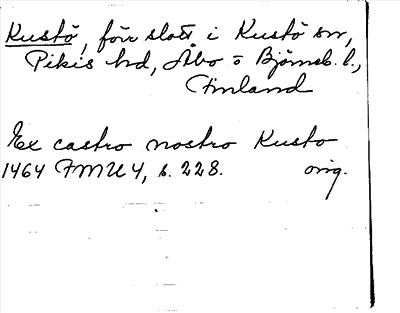 Kustö, förr slott i Kustö sn,
Pikis hd, Åbo o Björneb. l.,
Finland
Ex castro nostro Kusto
1464 FMU 4, s. 228. orig.